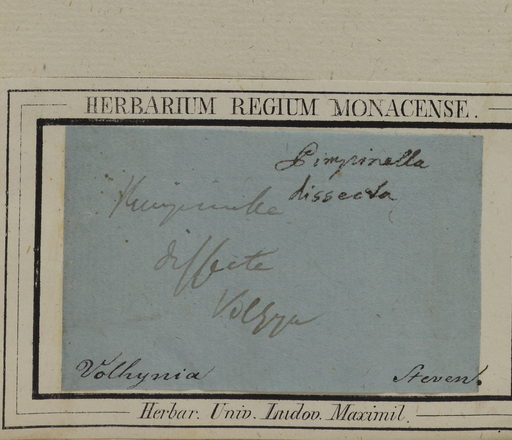 HERBARIUM REGIUM MONACENSE.
Pimpinella
dissecta
dissecta
Volhynia
Steven.
Herbar. Univ. Ludov. Maximil.